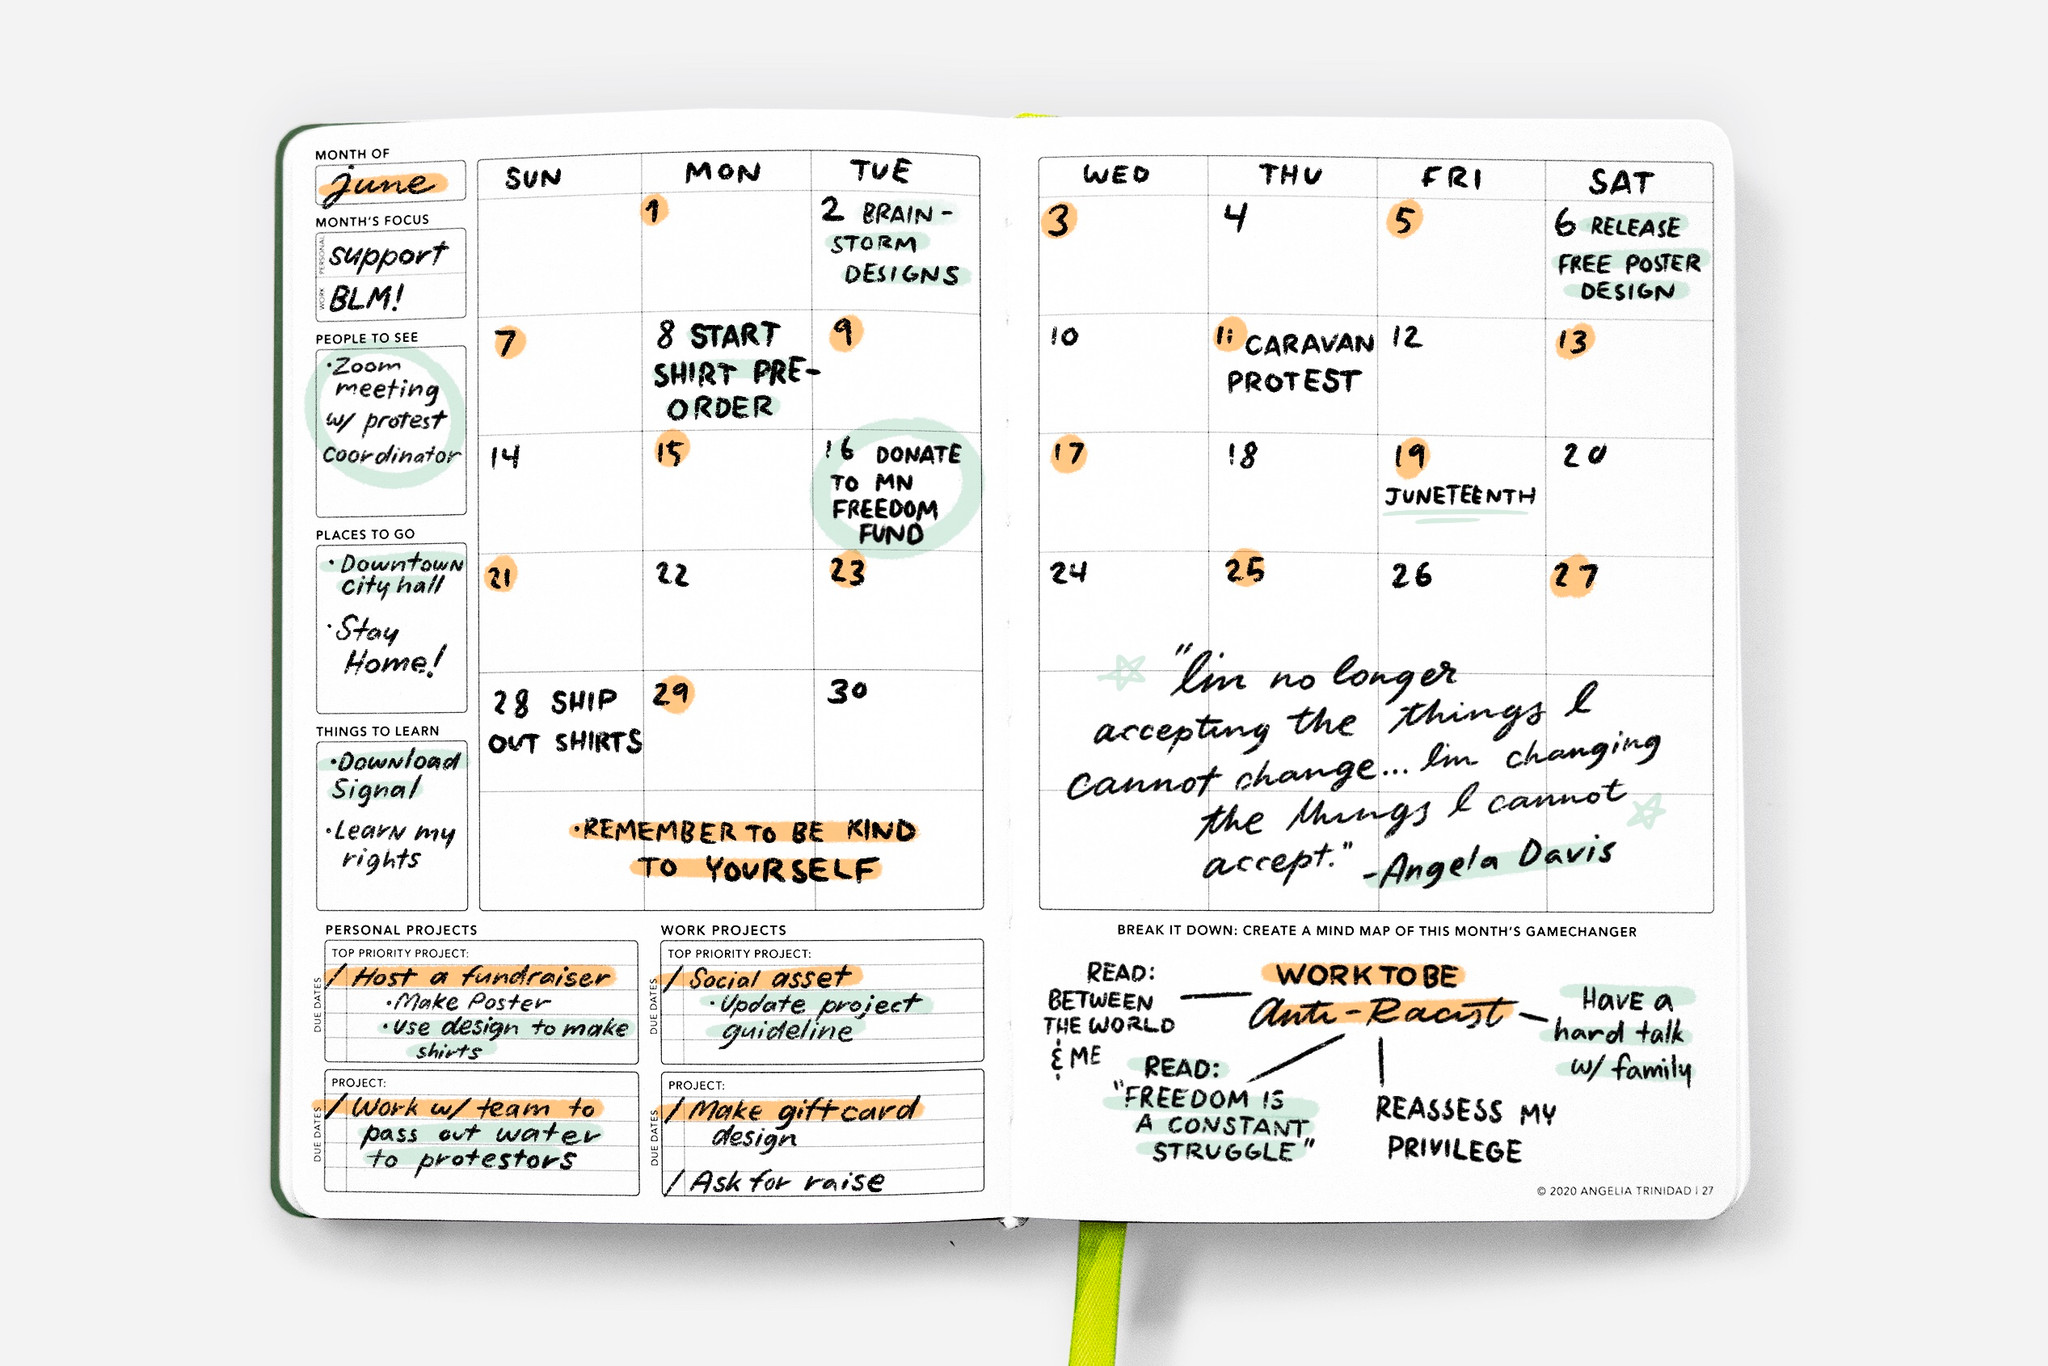 MONTH OF
june
MONTH'S FOCUS
PERSONAL
support
WORK
BLM!
PEOPLE TO SEE
·Zoom
meeting
w/ protest
coordinator
PLACES TO GO
·Downtown
city hall
·Stay
Home!
THINGS TO LEARN
·Download
Signal
·Learn my
rights
SUN MON TUE
1
2 BRAIN-
STORM
DESIGNS
7
8 START
SHIRT PRE-
ORDER
9
14
15
16 DONATE
TO MN
FREEDOM
FUND
21
22
23
28 SHIP
OUT SHIRTS
29
30
·REMEMBER TO BE KIND
TO YOURSELF
PERSONAL PROJECTS
TOP PRIORITY PROJECT:
DUE DATES
/ Host a fundraiser
·Make Poster
·use design to make
shirts
PROJECT:
DUE DATES
/ Work w/ team to
pass out water
to protestors
WORK PROJECTS
TOP PRIORITY PROJECT:
DUE DATES
/ Social asset
·Update project
guideline
PROJECT:
DUE DATES
/ Make gift card
design
/ Ask for raise
WED THU FRI SAT
3
4
5
6 RELEASE
FREE POSTER
DESIGN
10
11 CARAVAN
PROTEST
12
13
17
18
19
JUNETEENTH
20
24
25
26
27
"I'm no longer
accepting the things I
cannot change... I'm changing
the things I cannot
accept."
-Angela Davis
BREAK IT DOWN: CREATE A MIND MAP OF THIS MONTH'S GAMECHANGER
WORK TO BE
Anti-Racist
READ:
BETWEEN
THE WORLD
& ME
READ:
"FREEDOM IS
A CONSTANT
STRUGGLE"
REASSESS MY
PRIVILEGE
Have a
hard talk
w/ family
© 2020 ANGELIA TRINIDAD | 27